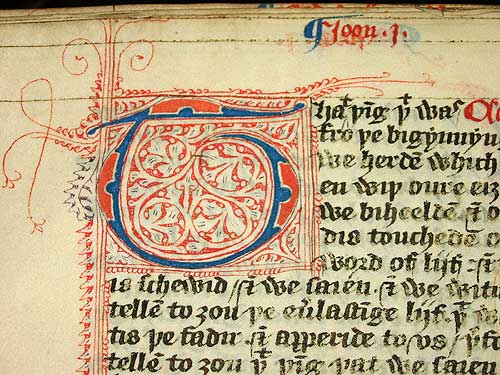 ¶ Ioon .j.
That þīg þͭ was
fro þe bigynnyn
we herdē which
en wiþ oure eiȝ
we biheeldē ⁊ o
dis touchede o
word of lijf : ⁊
is schewid / ⁊ we saien . ⁊ we witn
tellē to ȝou þe eu'lastīge lijf . þͭ w
tis þe fadir . ⁊ apperide to vs .
tellē to ȝou þͭ þīg þat we saien